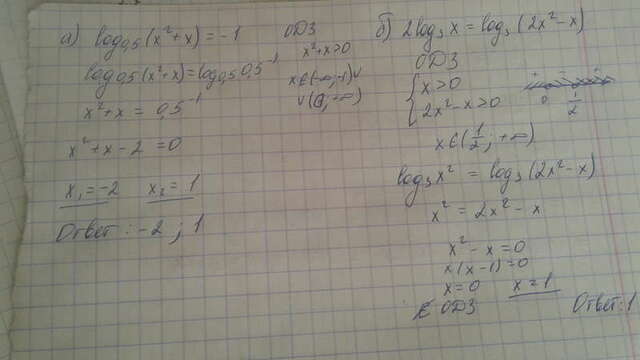 а) log₀,₅(x²+x) = -1
ОДЗ
x²+x>0
x∈(-∞;-1)∪
∪(0;+∞)
log₀,₅(x²+x) = log₀,₅0,5⁻¹
x²+x = 0,5⁻¹
x²+x-2=0
x₁=-2 x₂=1
Ответ: -2; 1
б) 2log₃x = log₃(2x²-x)
ОДЗ
{x>0
{2x²-x>0
0 1/2
x∈(1/2;+∞)
log₃x² = log₃(2x²-x)
x² = 2x²-x
x²-x=0
x(x-1)=0
x=0 x=1
∉ ОДЗ
Ответ: 1